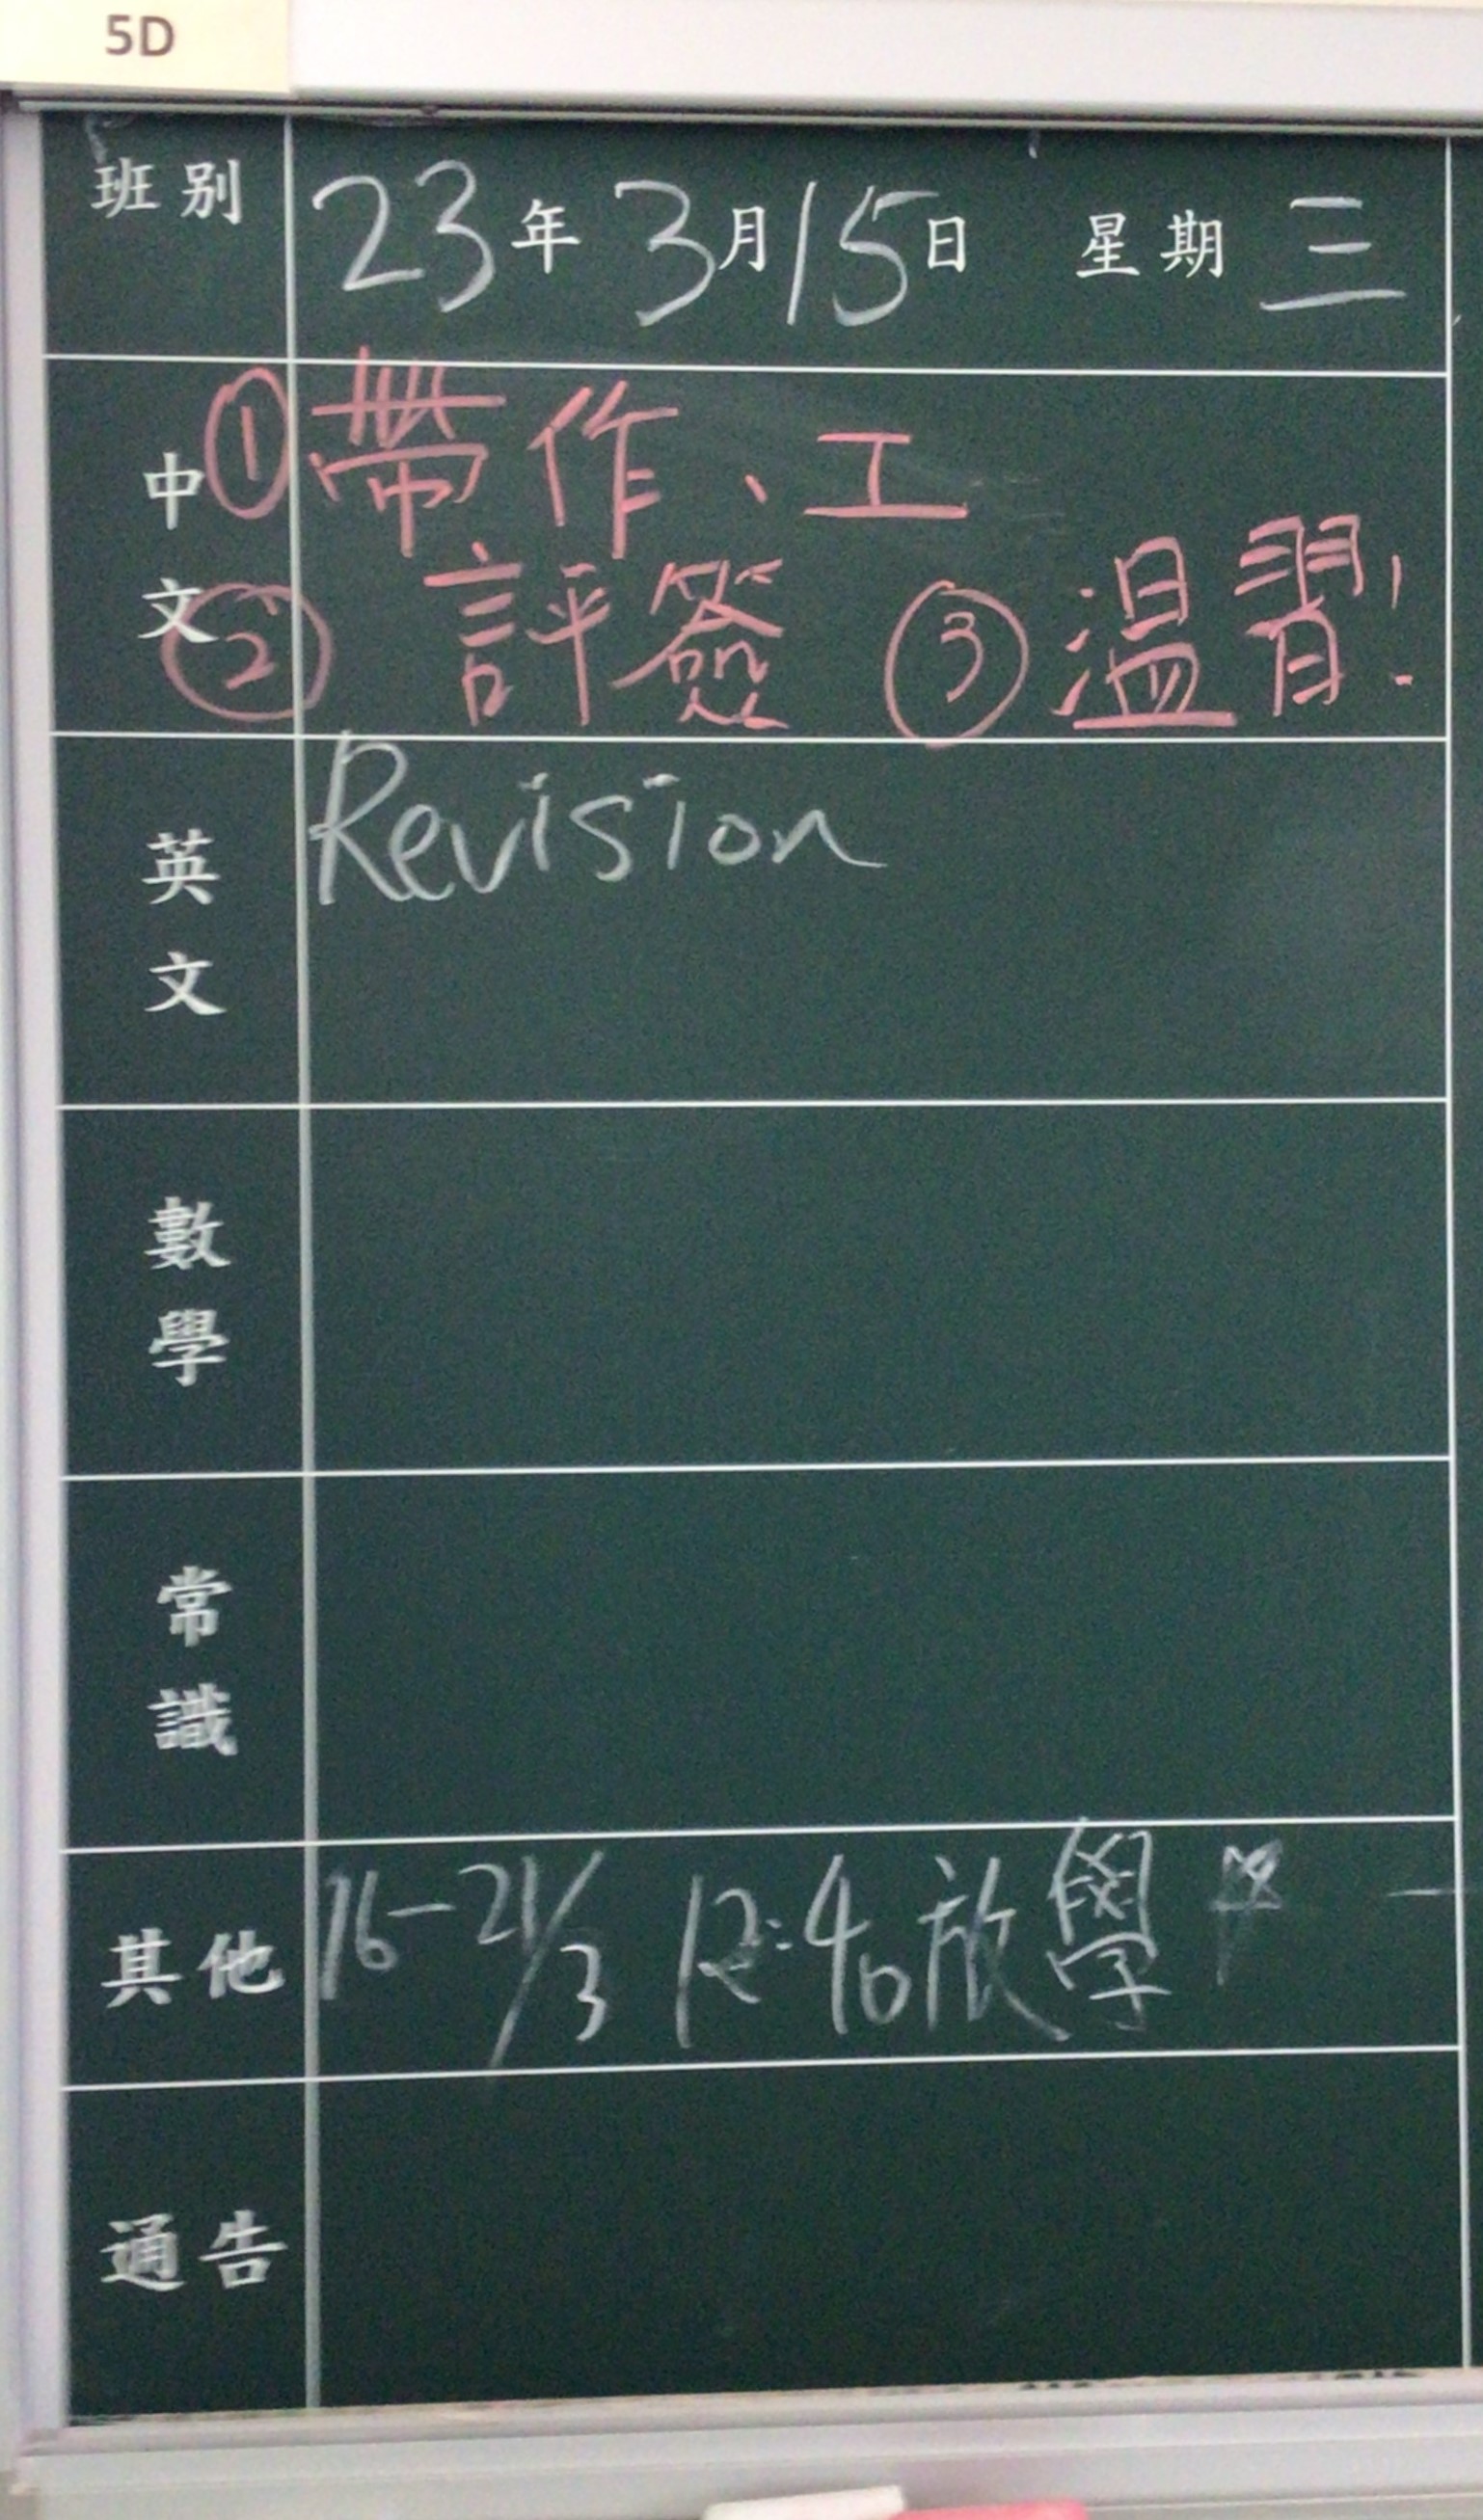 5D
班別 23年3月15日 星期三
中文 ①帶作、工
②評簽 ③溫習！
英文 Revision
數學
常識
其他 16-21/3 12:40放學
通告